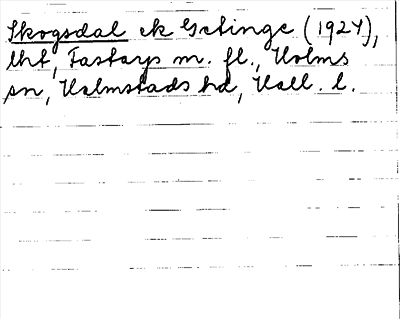 Skogsdal ek Getinge (1924),
lht, Fastarps m. fl., Holms
sn, Halmstads hd, Hall. l.